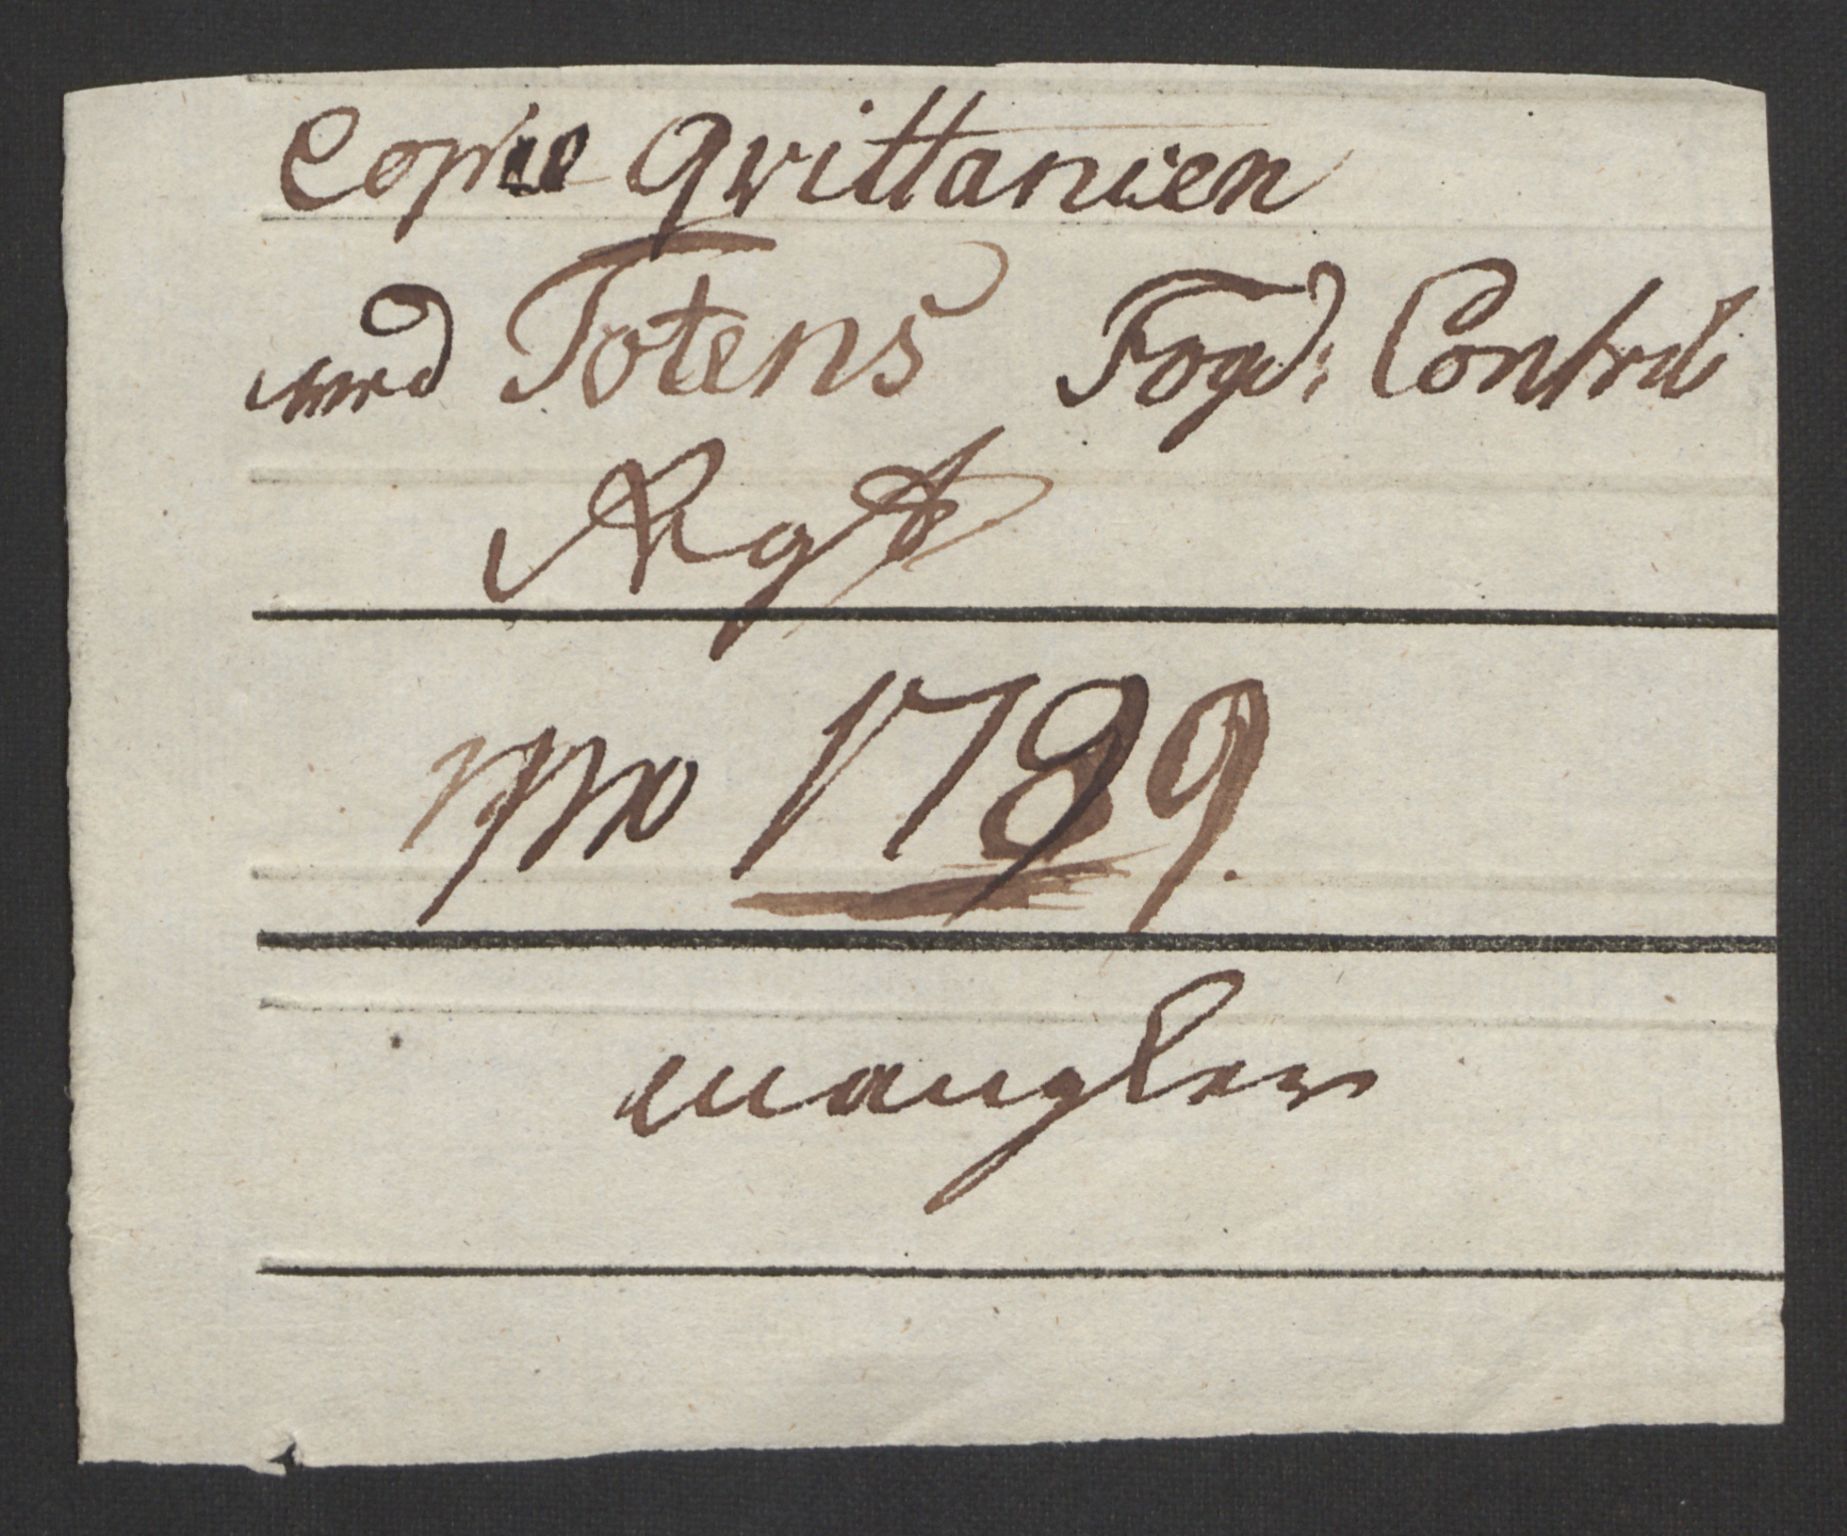 Copie Qvittancien
med Totens Fogd: Contrib
Rgs
pro 1789.
mangler